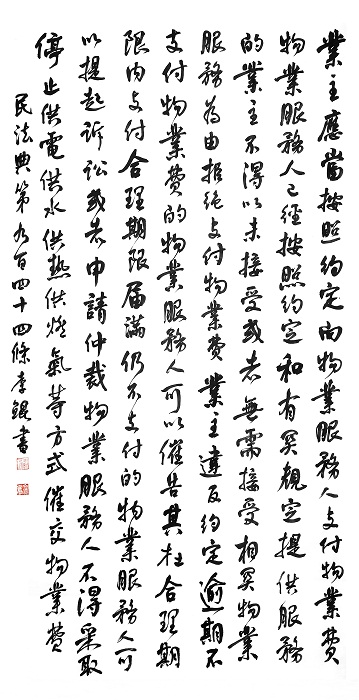 業主應當按照約定向物業服務人支付物業費
物業服務人已經按照約定和有関規定提供服務
的業主不得以未接受或者無需接受相関物業
服務為由拒絶支付物業費 業主違反約定逾期不
支付物業費的物業服務人可以催告其在合理期
限内支付合理期限届滿仍不支付的物業服務人可
以提起訴訟或者申請仲裁物業服務人不得采取
停止供電供水供熱供燃氣等方式催交物業費
民法典第九百四十四條 李 書